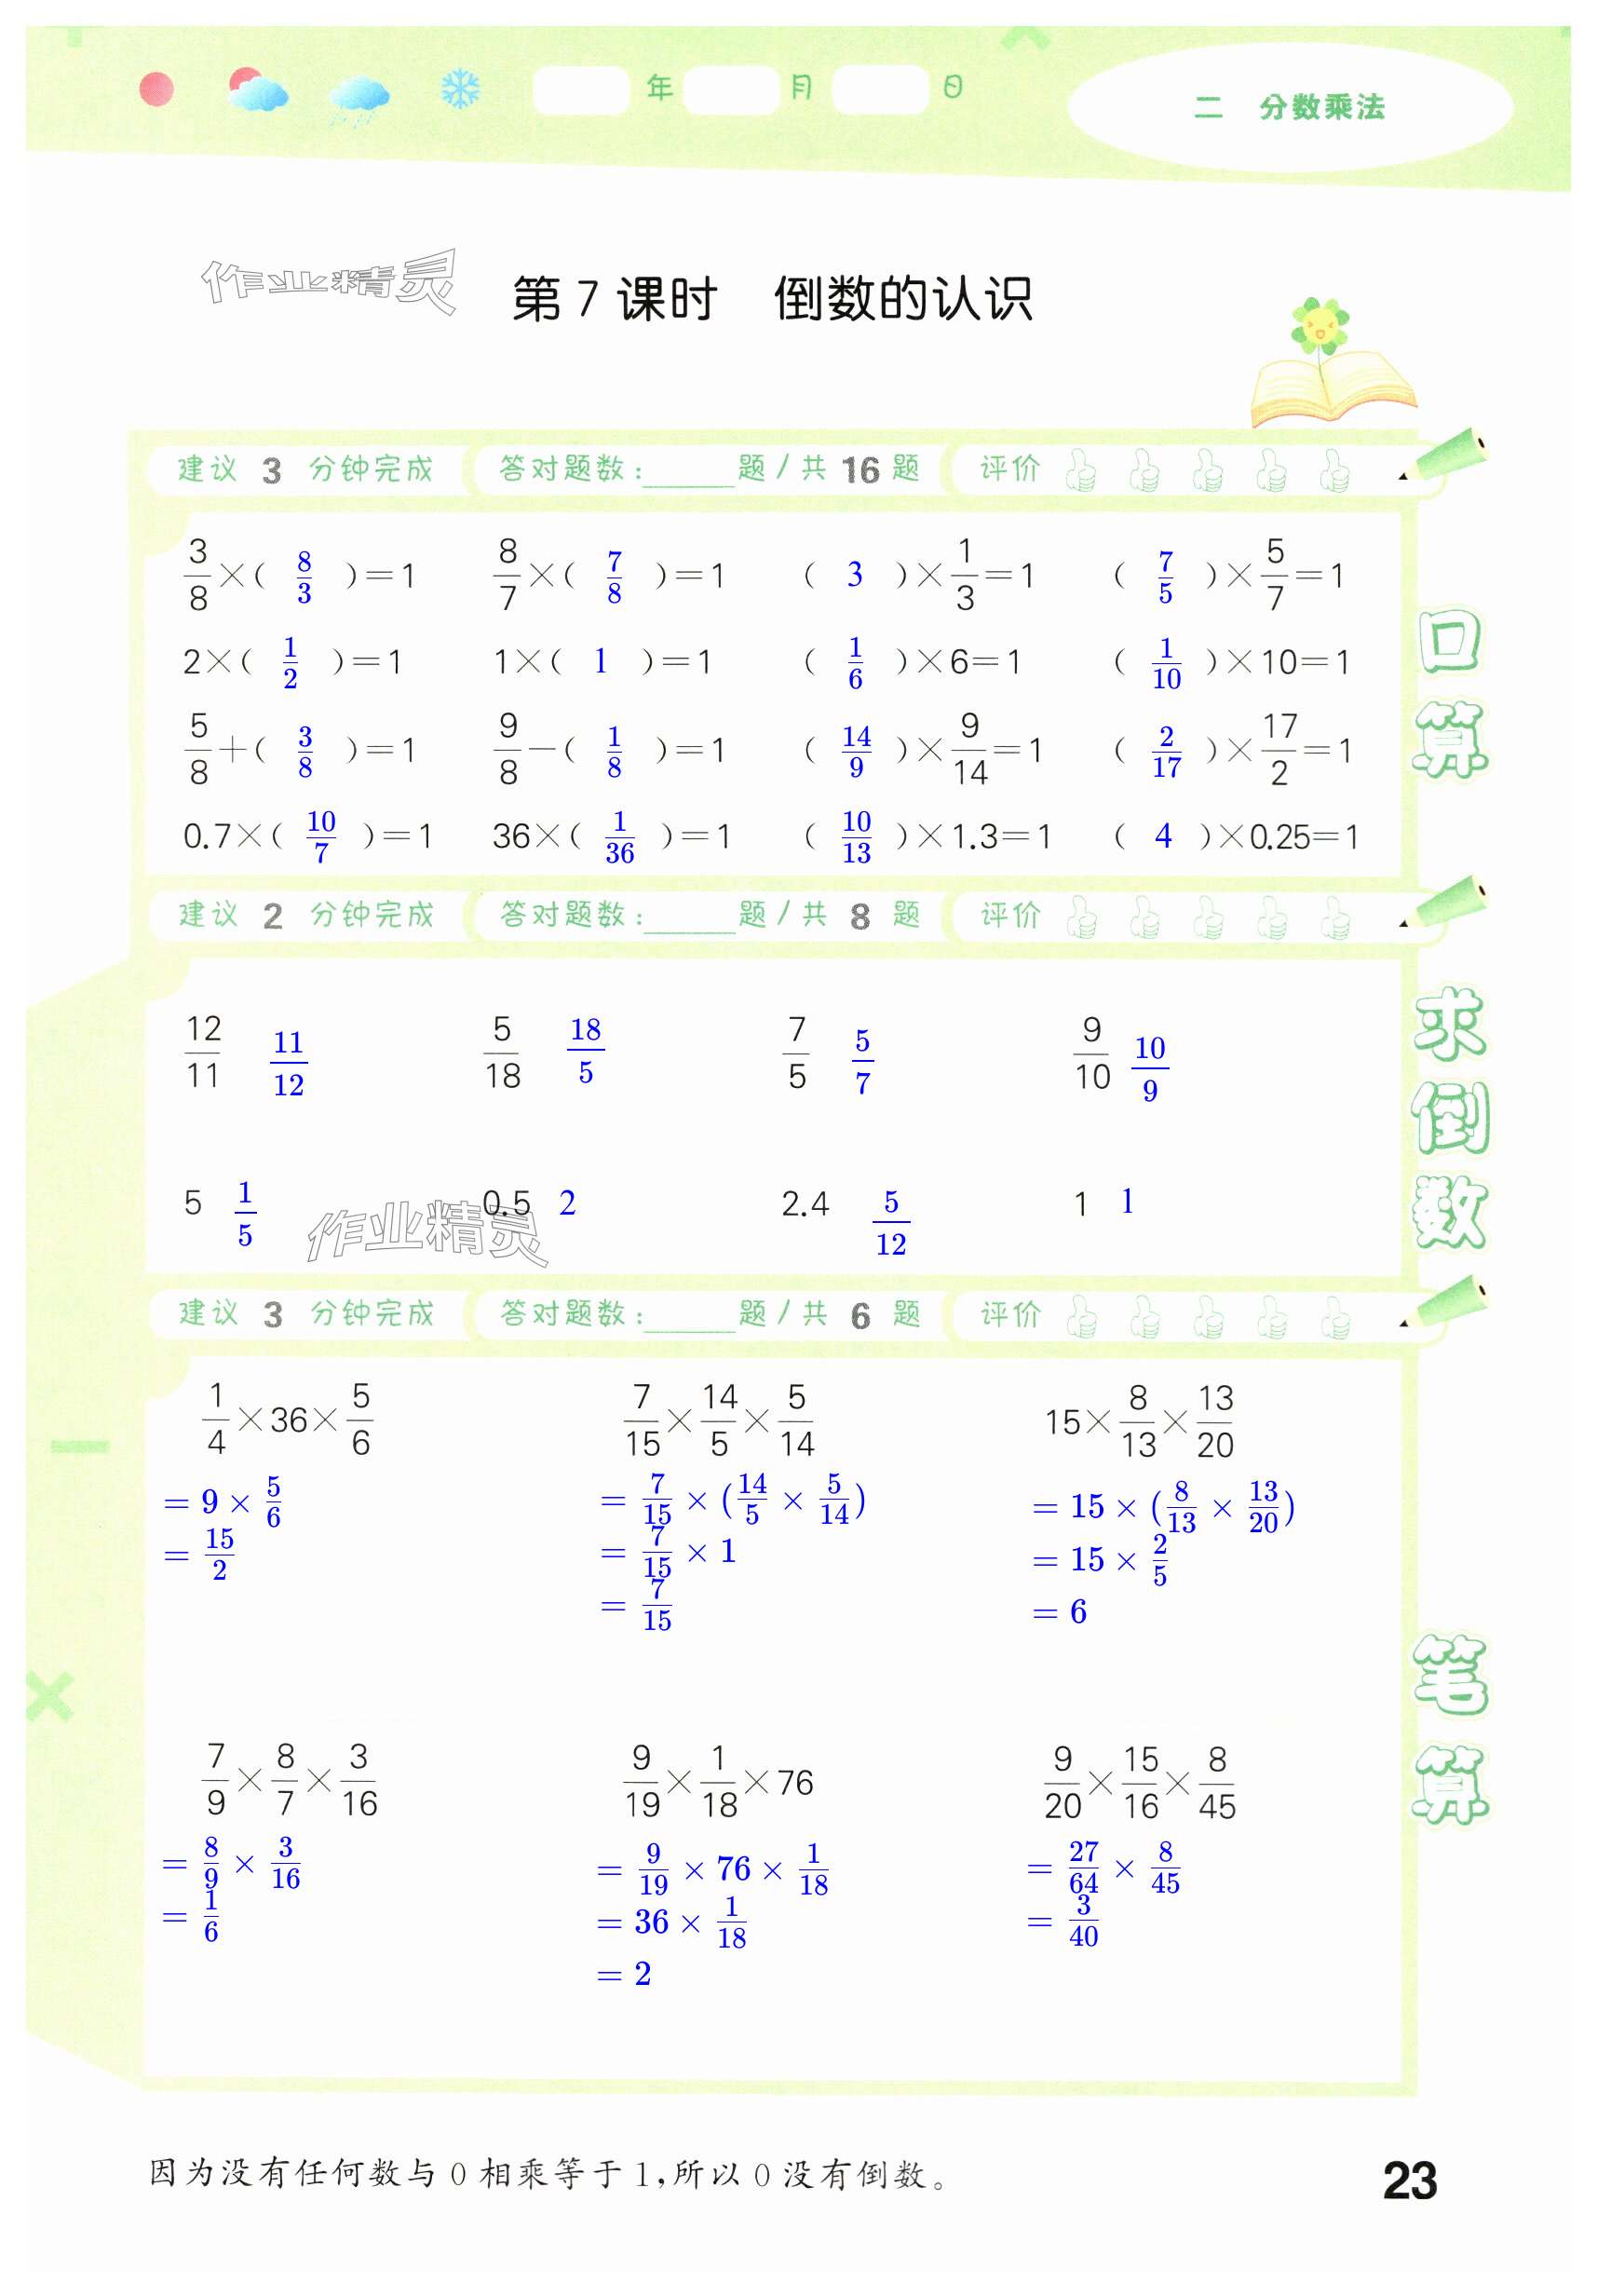 年 月 日
二 分数乘法
作业精灵
第 7 课时 倒数的认识
建议 3 分钟完成 答对题数:______题 / 共 16 题 评价
3/8×( 8/3 )=1 8/7×( 7/8 )=1 ( 3 )×1/3=1 ( 7/5 )×5/7=1
2×( 1/2 )=1 1×( 1 )=1 ( 1/6 )×6=1 ( 1/10 )×10=1
5/8+( 3/8 )=1 9/8-( 1/8 )=1 ( 14/9 )×9/14=1 ( 2/17 )×17/2=1
0.7×( 10/7 )=1 36×( 1/36 )=1 ( 10/13 )×1.3=1 ( 4 )×0.25=1
口算
建议 2 分钟完成 答对题数:______题 / 共 8 题 评价
12/11 11/12 5/18 18/5 7/5 5/7 9/10 10/9
5 1/5 0.5 2 2.4 5/12 1 1
作业精灵
求倒数
建议 3 分钟完成 答对题数:______题 / 共 6 题 评价
1/4×36×5/6 7/15×14/5×5/14 15×8/13×13/20
= 9 × 5/6 = 7/15 × (14/5 × 5/14) = 15 × (8/13 × 13/20)
= 15/2 = 7/15 × 1 = 15 × 2/5
= 7/15 = 6
7/9×8/7×3/16 9/19×1/18×76 9/20×15/16×8/45
= 8/9 × 3/16 = 9/19 × 76 × 1/18 = 27/64 × 8/45
= 1/6 = 36 × 1/18 = 3/40
= 2
笔算
因为没有任何数与 0 相乘等于 1,所以 0 没有倒数。
23